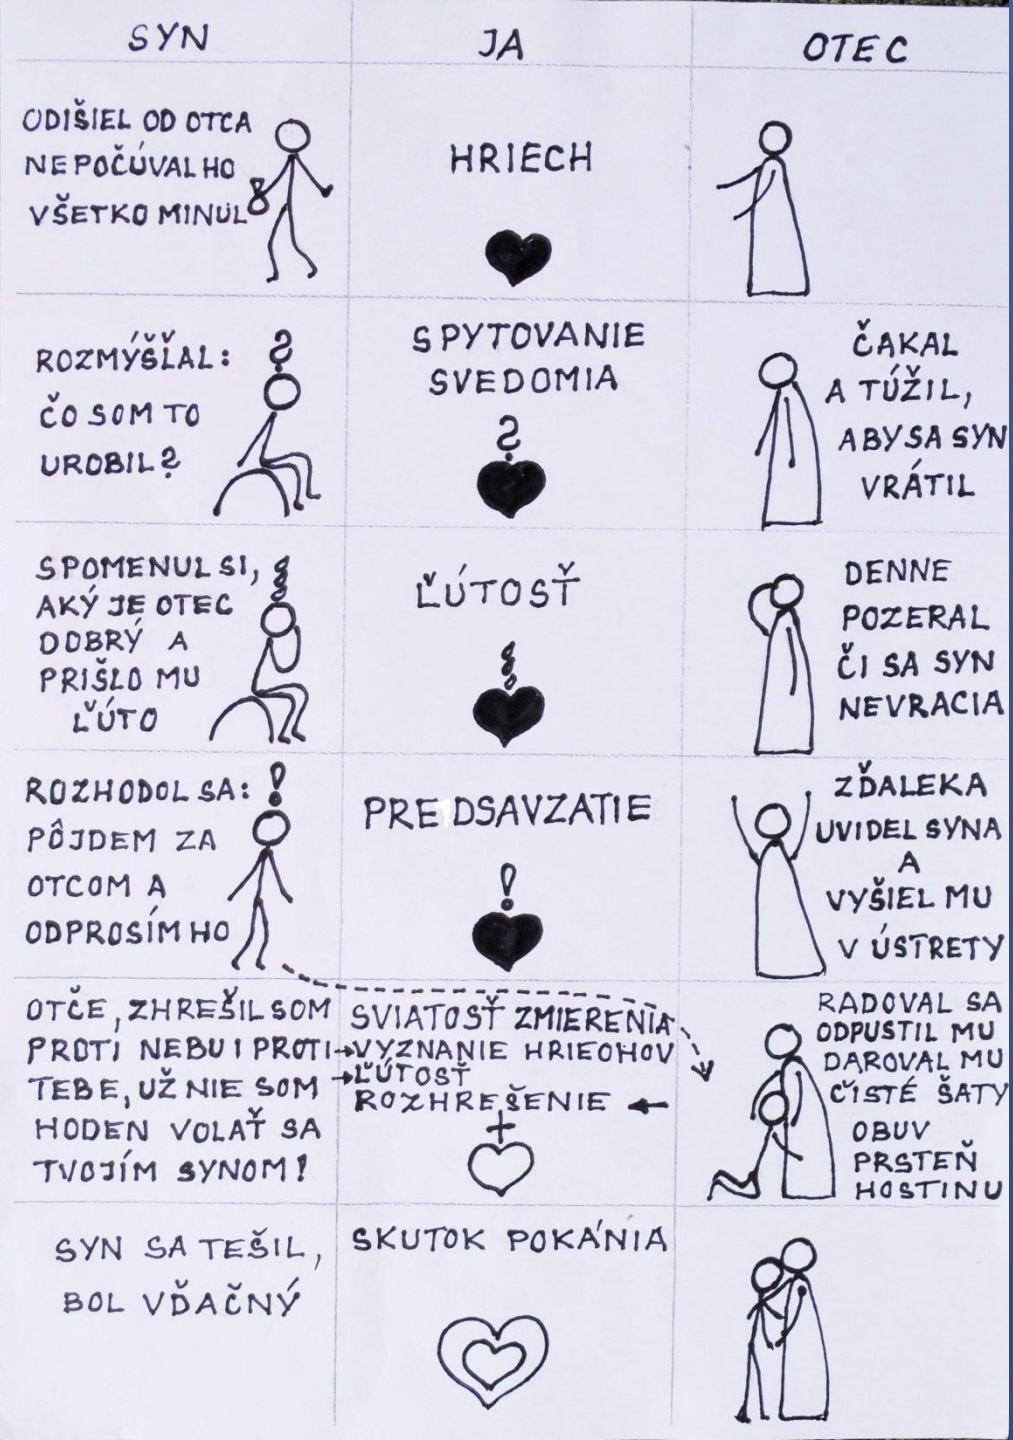 SYN
JA
OTEC
ODIŠIEL OD OTCA
NEPOČÚVAL HO
VŠETKO MINUL
HRIECH
ROZMÝŠĽAL:
ČO SOM TO
UROBIL?
SPYTOVANIE
SVEDOMIA
ČAKAL
A TÚŽIL,
ABY SA SYN
VRÁTIL
SPOMENUL SI,
AKÝ JE OTEC
DOBRÝ A
PRIŠLO MU
ĽÚTO
ĽÚTOSŤ
DENNE
POZERAL
ČI SA SYN
NEVRACIA
ROZHODOL SA:
PÔJDEM ZA
OTCOM A
ODPROSÍM HO
PREDSAVZATIE
ZĎALEKA
UVIDEL SYNA
A
VYŠIEL MU
V ÚSTRETY
OTČE, ZHREŠIL SOM
PROTI NEBU I PROTI
TEBE, UŽ NIE SOM
HODEN VOLAŤ SA
TVOJÍM SYNOM!
SVIATOSŤ ZMIERENIA
VYZNANIE HRIECHOV
ĽÚTOSŤ
ROZHREŠENIE
RADOVAL SA
ODPUSTIL MU
DAROVAL MU
ČISTÉ ŠATY
OBUV
PRSTEŇ
HOSTINU
SYN SA TEŠIL,
BOL VĎAČNÝ
SKUTOK POKÁNIA